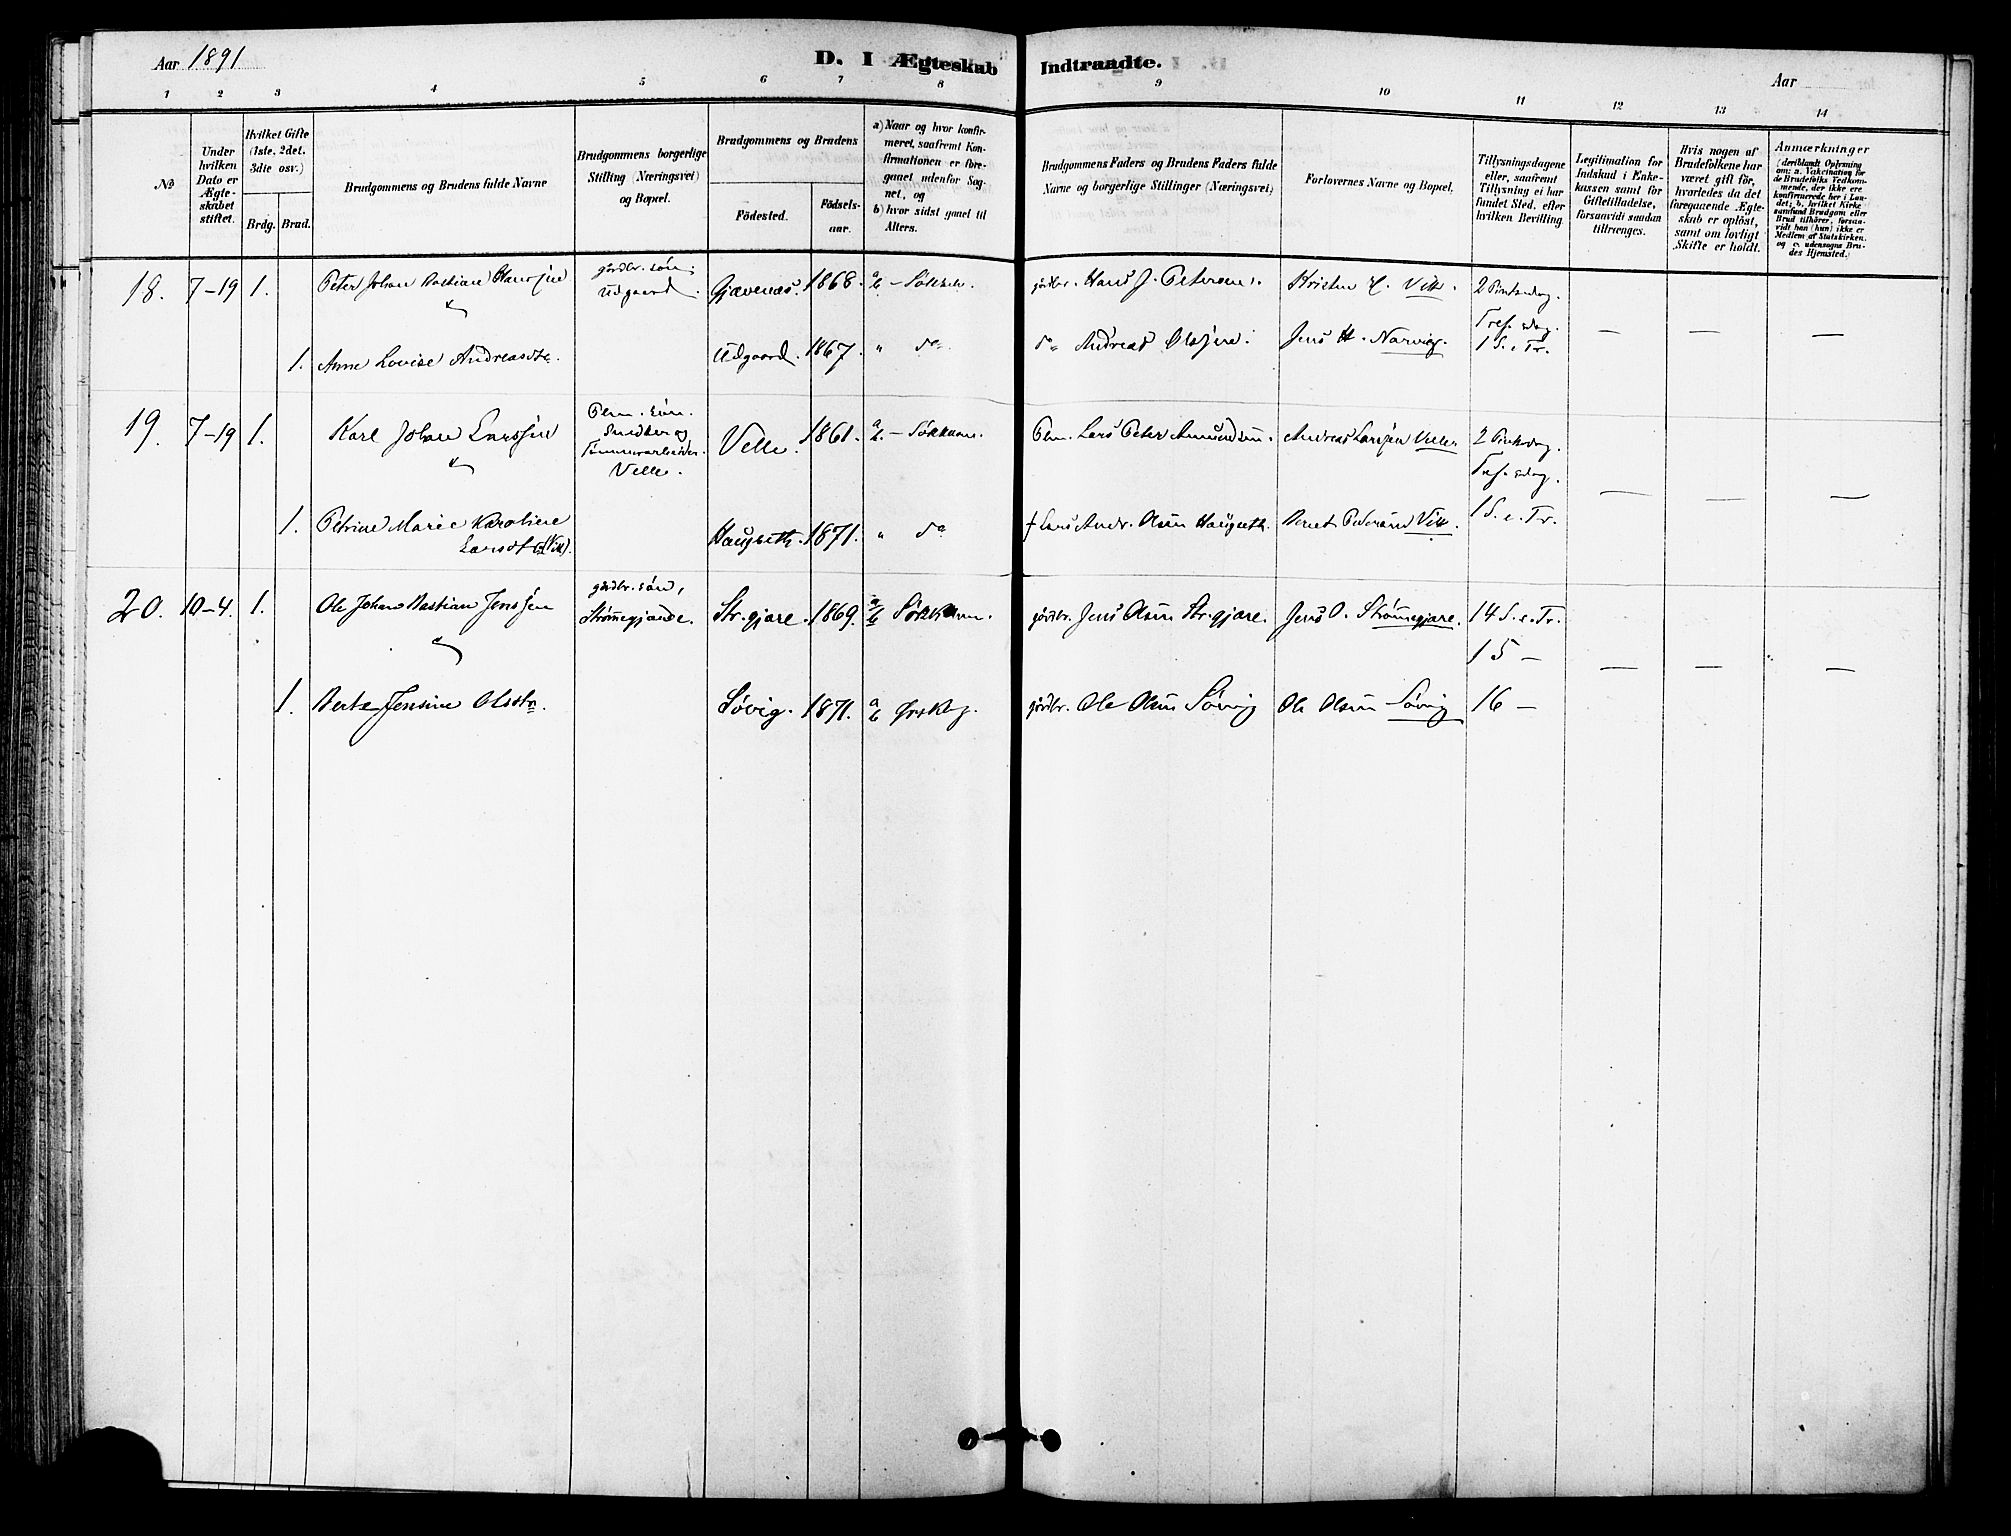 Aar 1891
D. I Ægteskab Indtraadte.
Aar
1 2 3 4 5 6 7 8 9 10 11 12 13 14
№
Under hvilken Dato er Ægte-skabet stiftet.
Hvilket Gifte (1ste, 2det, 3die osv.)
Brdg. Brud.
Brudgommens og Brudens fulde Navne
Brudgommens borgerlige Stilling (Næringsvei) og Bopæl.
Brudgommens og Brudens
Födested.
Födsels-aar.
a) Naar og hvor konfir-
meret, saafremt Kon-
firmationen er fore-
gaaet udenfor Sog-
net, og
b) hvor sidst gaaet til
Alters.
Brudgommens Faders og Brudens Faders fulde
Navne og borgerlige Stillinger (Næringsvei)
Forlovernes Navne og Bopæl.
Tillysningsdagene
eller, saafremt
Tillysning ei har
fundet Sted, efter
hvilken Bevilling
Legitimation for
Indskud i Enke-
kassen samt for
Giftetilladelse,
forsaavidt saadan
tiltrænges.
Hvis nogen af
Brudefolkene har
været gift för,
hvorledes da det
foregaaende Ægte-
skab er oplöst,
samt om lovligt
Skifte er holdt.
Anmærkninger
(deriblandt Oplysning
om: a. Vakcination for
de Brudefolks Vedkom-
mende, der ikke ere
konfirmerede her i Lan-
det; b. hvilket Kirke-
samfund Brudgom eller
Brud tilhörer, forsaa-
vidt han (hun) ikke er
Medlem af Statskirken,
og c. udensogns Bru-
des Hjemsted.)
18. 7-19 1. Peter Johan Bastian Hansen gårdbr. søn, Udgaard. Gjævenæs. 1868. a/b - Søkkelv. gårdbr. Hans J. Petersen. Kristen H. Vik. 2 Pintsedag.
Tref. sdag.
1. Anne Lovise Andreasdtr. Udgaard. 1867. " do do Andreas Olssen. Jens H. Narvig. 1 S. e. Tr. — — —
19. 7-19 1. Karl Johan Larssen Plm. søn. Snedker og Tømmerarbeider. Velle. Velle. 1861. a/b - Søkkelv. Plm. Lars Peter Amundsen. Andreas Larssen Velle 2 Pintsedag.
Tref. sdag.
1. Petrine Marie Karoline Larsdtr (Vik). Haugseth. 1871. " do † Lars Andr. Olsen Haugseth. Bernt Pedersen Vik. 1 S. e. Tr. — — —
20. 10-4. 1. Ole Johan Bastian Jenssen gårdbr. søn, Strømmegjærde. Str.gjære. 1869. a/b Søkkelven. gårdbr. Jens Olsen Str.gjære. Jens O. Strømmegjære. 14 S. e. Tr.
15 — — — —
1. Berte Jensine Olsdtr. Søvig. 1871. a/b Ørskog. gårdbr. Ole Olsen Søvig Ole Olsen Søvig 16 —